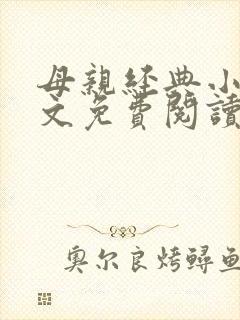 母親經典小
文免費閱讀
奧尔良烤鲟鱼